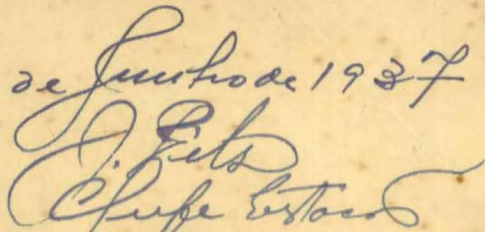 de Junho de 1937
J.
Chefe Estacao